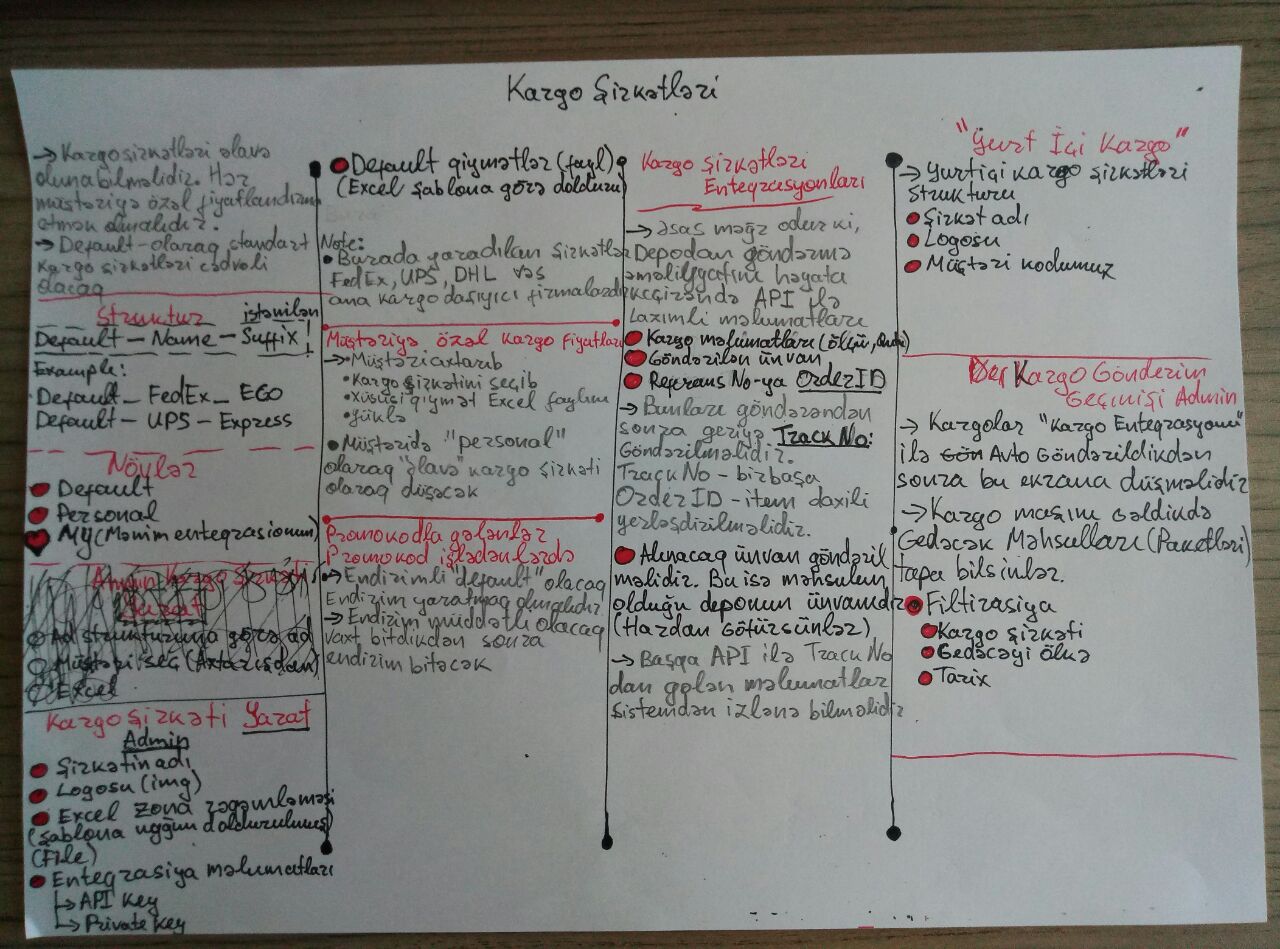 Kargo Şirkətləri
→ Kargo şirkətləri əlavə
oluna bilməlidir. Hər
müştəriyə özəl fiyatlandırma
etmək olmalıdır.
→ Default-olaraq standart
kargo şirkətləri cədvəli
olacaq
Struktur istənilən
Default - Name - Suffix !
Example:
Default_ FedEx_ EGO
Default - UPS - Express
Növlər
Default
Personal
My (Mənim enteqrasionum)
Kargo Şirkəti
Yarat
Ad strukturuna görə ad
Müştəri seç (Axtarışdan)
Excel
Kargo Şirkəti Yarat
Admin
Şirkətin adı
Logosu (img)
Excel zona rəqəmləməsi
(şablona uyğun doldurulmuş)
(File)
Enteqrasiya məlumatları
↳ API Key
↳ Private Key
Default qiymətlər (fayl)
(Excel şablona görə dolduru)
Note:
• Burada yaradılan şirkətlər
FedEx, UPS, DHL vəs
ana kargo daşıyıcı firmalardır
Müştəriyə özəl Kargo fiyatları
→ Müştəri axtarıb
• Kargo şirkətini seçib
• Xüsusi qiymət Excel faylını
• yüklə
• Müştəridə "personal"
olaraq "əlavə" kargo şirkəti
olaraq düşəcək
Promokodla gələnlər
Promokod işlədənlərdə
→ Endirimli "default" olacaq
Endirim yaratmaq olmalıdır
→ Endirim müddətli olacaq
vaxt bitdikdən sonra
endirim bitəcək
Kargo şirkətləri
Enteqrasyonları
→ Əsas məğz odur ki,
Depodan göndərmə
əməliyyatını həyata
keçirəndə API ilə
Lazımlı məlumatları
Kargo məlumatları (ölçü,
Göndərilən ünvan
Referans No-ya OrderID
→ Bunları göndərəndən
sonra geriyə Track No:
Göndərilməlidir.
Track No - birbaşa
Order ID - item daxili
yerləşdirilməlidir.
Alınacaq ünvan göndəril
məlidir. Bu isə məhsulun
olduğu deponun ünvanıdır
(Hardan Götürsünlər)
→ Başqa API ilə Track No
dan gələn məlumatlar
sistemdən izlənə bilməlidir
"Yurt İçi Kargo"
→ Yurtiçi kargo şirkətləri
strukturu
Şirkət adı
Logosu
Müştəri kodumuz
Kargo Gönderim
Geçmişi Admin
→ Kargolar "Kargo Enteqrasyonu"
ilə Gön Avto Göndərildikdən
sonra bu ekrana düşməlidir
→ Kargo maşını Gəldikdə
Gedəcək Məhsulları (Paketləri)
tapa bilsinlər.
Filtirasiya
Kargo şirkəti
Gedəcəyi ölkə
Tarix